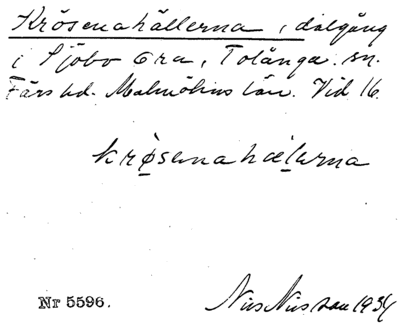 Krösenahällerna, dalgång
i Sjöbo Ora, Tolånga. sn.
Färs hd. Malmöhus län. Vid 16.
krø̣senahæḷerna
Nr 5596.
Nils Nilsson 1934